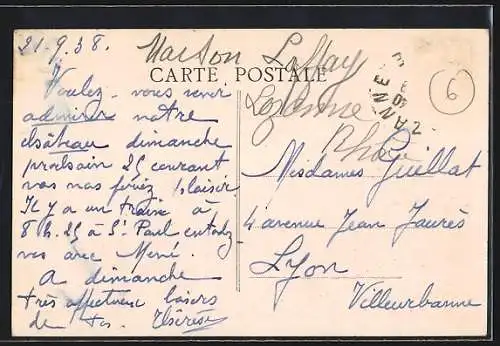 21-9.38.
Maison Laffay
CARTE POSTALE
Lozanne
Rhône
6
Voulez-vous venir
admirer notre
château dimanche
prochain 25 courant
vos nos feriez plaisir.
Il y a un train à
8 h. 25 à St Paul entendez
vos avec Mémé.
A dimanche
très affectueux baisers
de tes Thérèse
Mesdames Guillat
4 avenue Jean Jaurès
Lyon
Villeurbanne